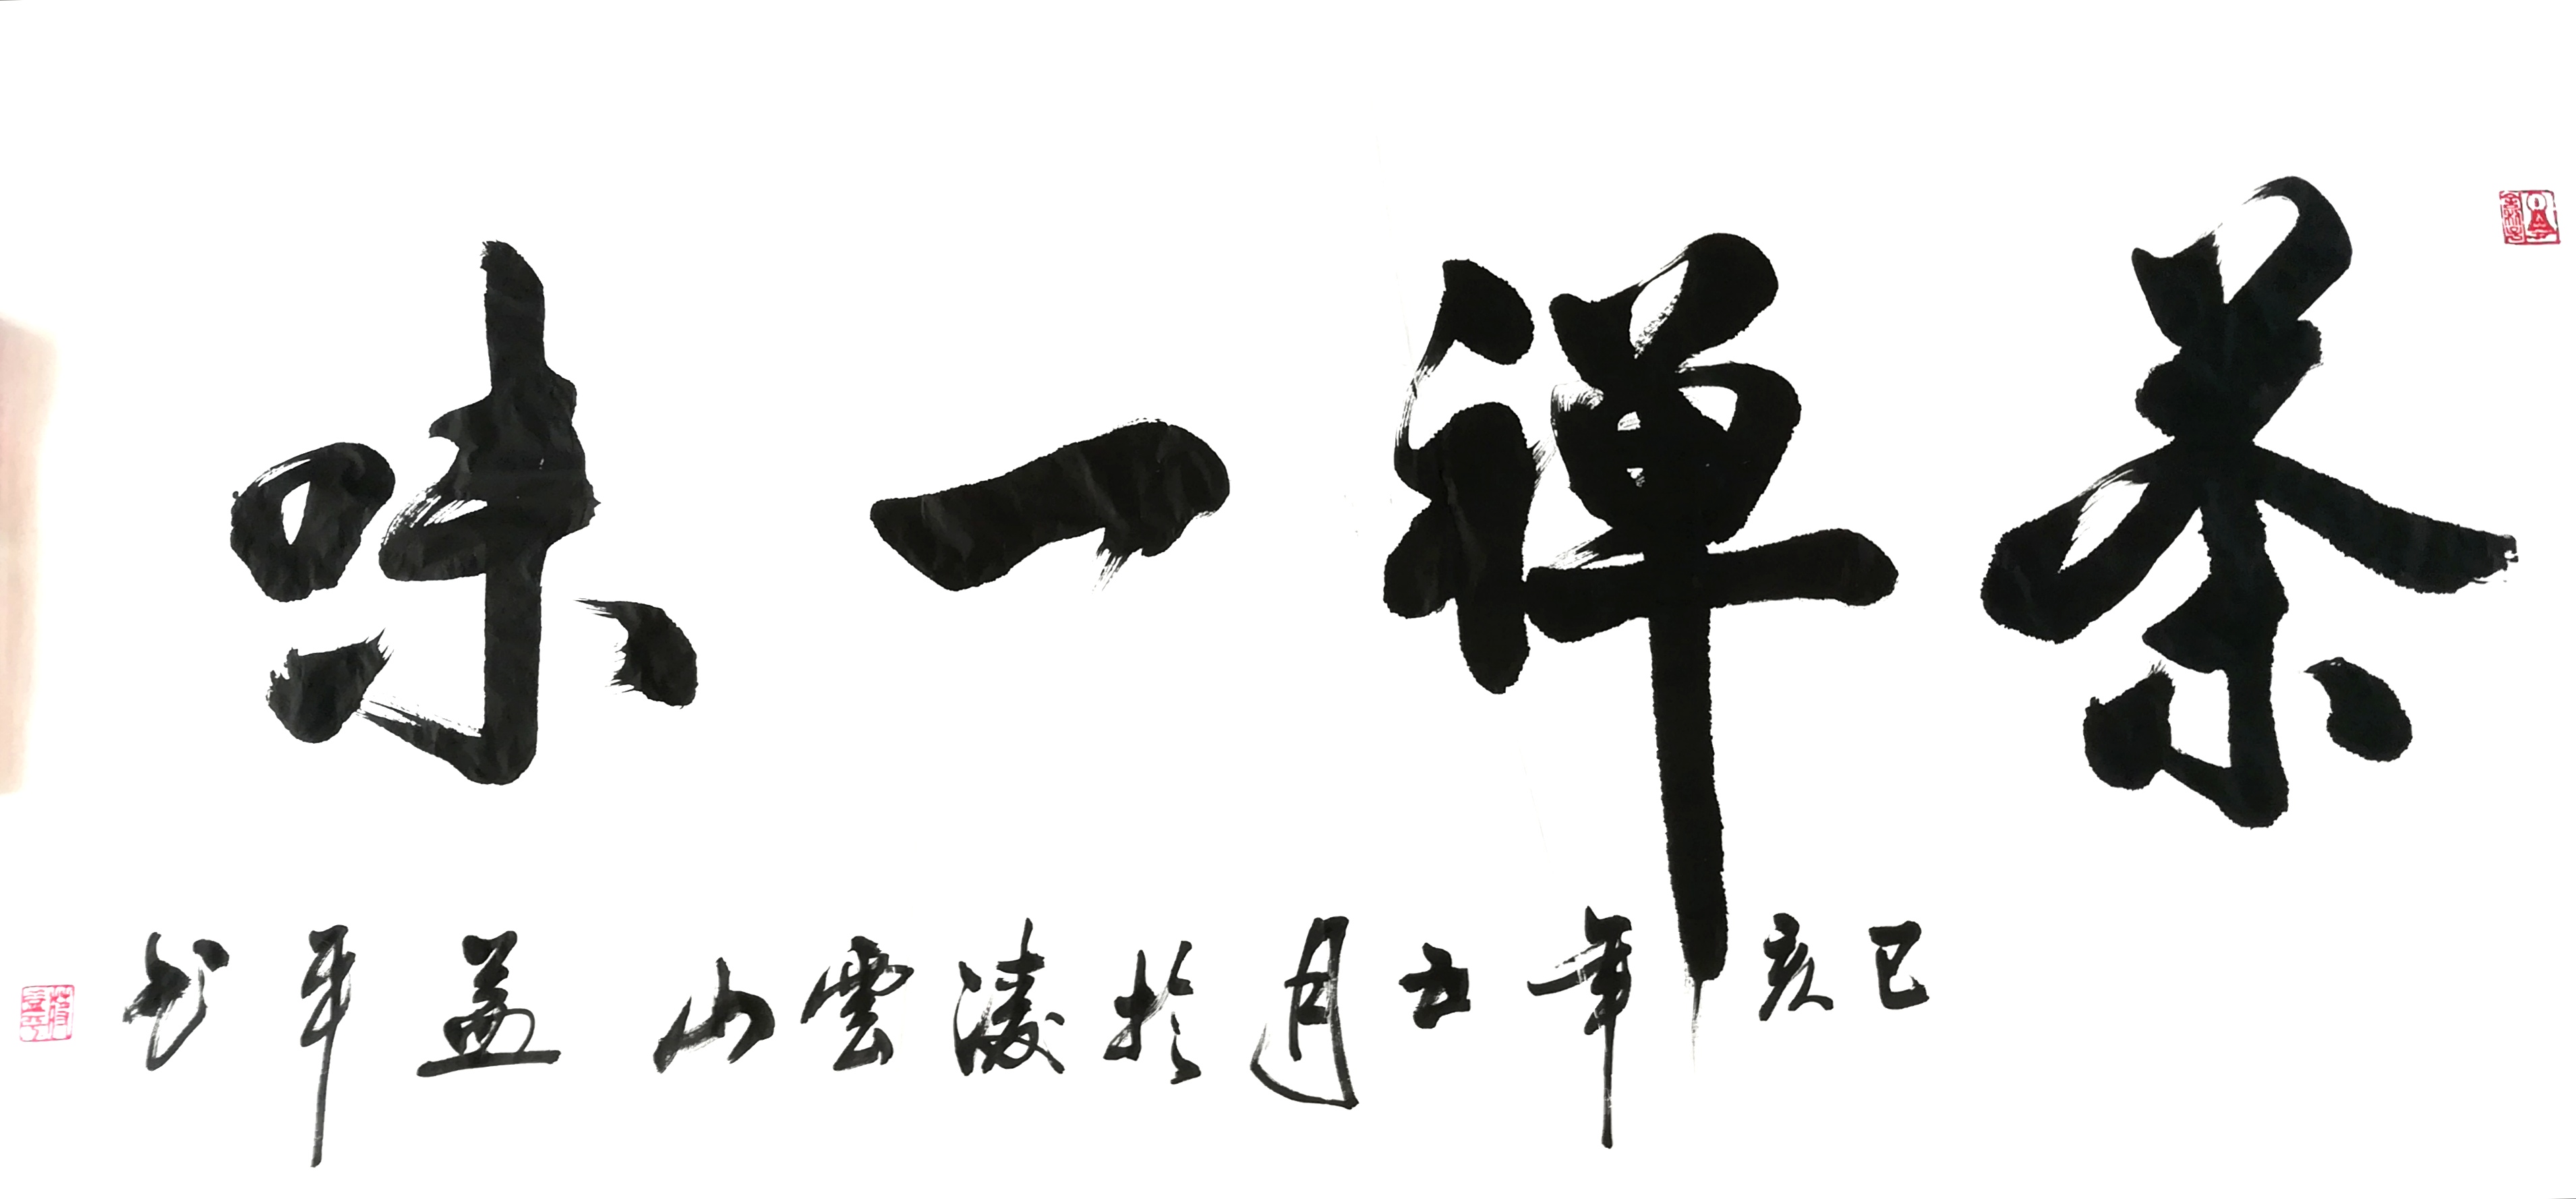 茶禅一味
己亥年五月於凌雲山益平书